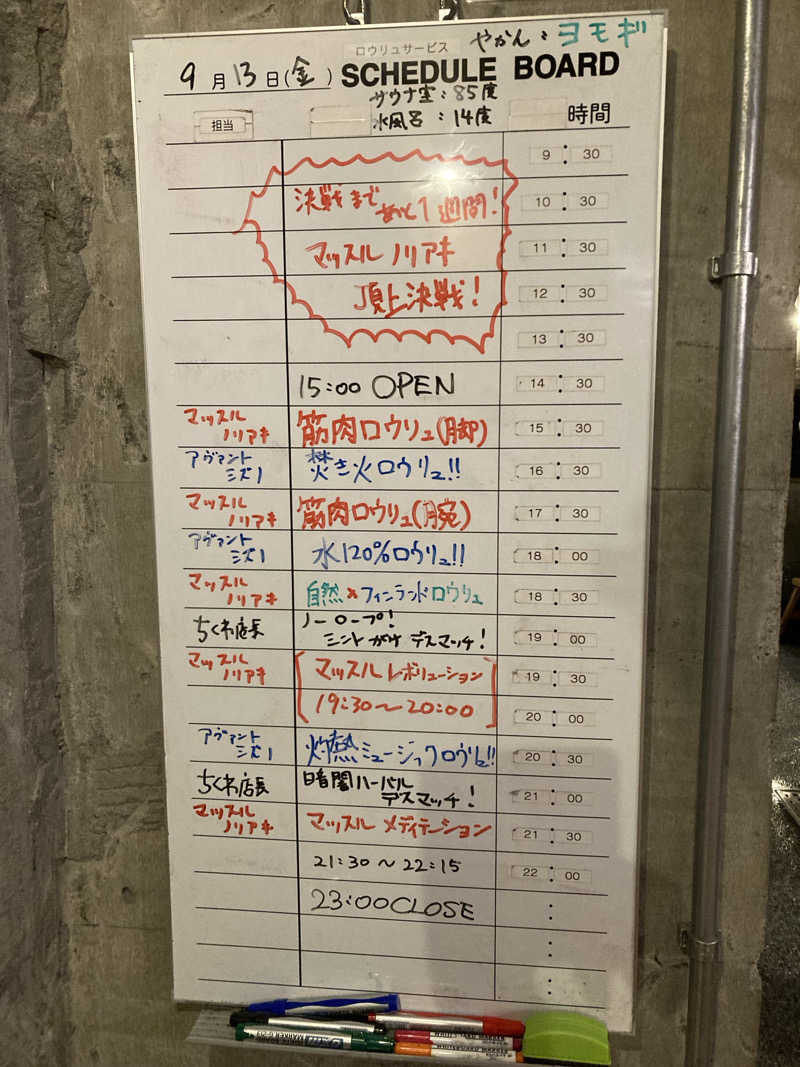 ロウリュサービス
やかん：ヨモギ
9月13日(金)
SCHEDULE BOARD
サウナ室：85度
水風呂：14度
担当
時間
9:30
決戦まであと1週間！ 10:30
マッスルノリアキ 11:30
頂上決戦！ 12:30
13:30
15:00 OPEN 14:30
マッスルノリアキ 筋肉ロウリュ(脚) 15:30
アヴァントシズ1 焚き火ロウリュ!! 16:30
マッスルノリアキ 筋肉ロウリュ(腕) 17:30
アヴァントシズ1 水120%ロウリュ!! 18:00
マッスルノリアキ 自然×フィンランドロウリュ 18:30
ちくわ店長 ノーロープ！ミントがけデスマッチ！ 19:00
マッスルノリアキ マッスルレボリューション 19:30
19:30〜20:00 20:00
アヴァントシズ1 灼熱ミュージックロウリュ!! 20:30
ちくわ店長 暗闇ハーバルデスマッチ！ 21:00
マッスルノリアキ マッスルメディテーション 21:30
21:30〜22:15 22:00
23:00CLOSE